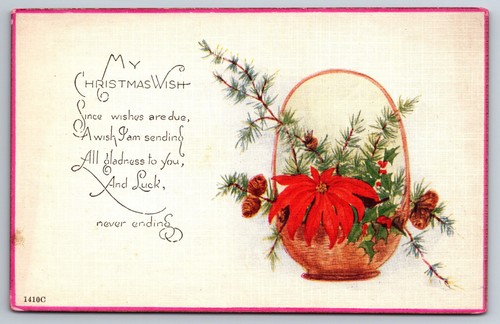 My
Christmas Wish
Since wishes are due,
A wish I am sending
All gladness to you,
And Luck,
never ending
1410C